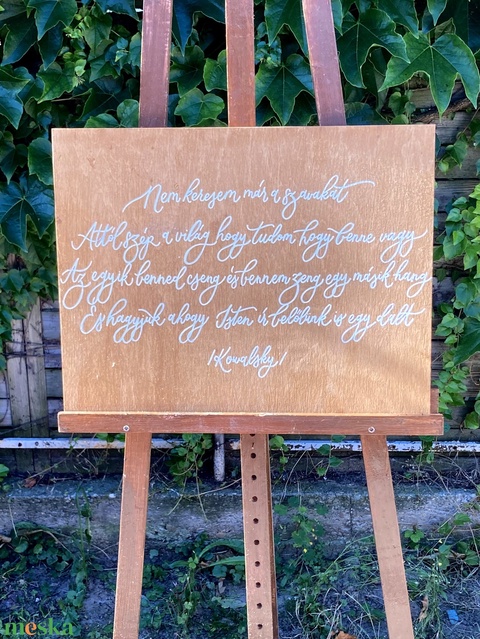 Nem keresem már a szavakat
Attól szép a világ hogy tudom hogy benne vagy
Az egyik benned cseng és bennem zeng egy másik hang
És hagyjuk ahogy Isten ír belőlünk is egy dalt
/Kowalsky/
meska